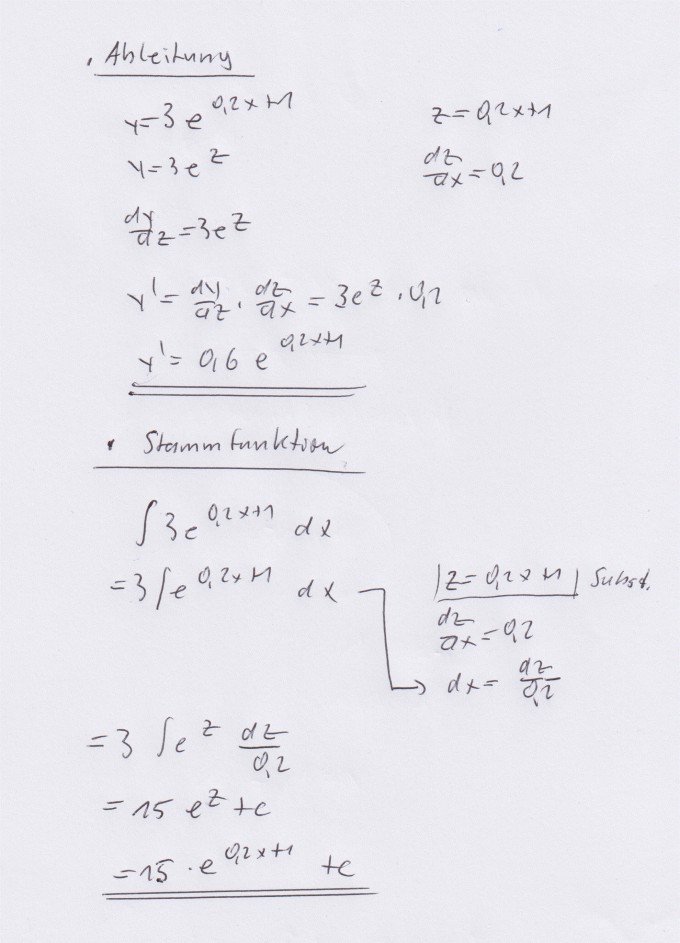 . Ableitung
y=3 e^{0,2x+1}    z=0,2x+1
y=3 e^z    dz/dx=0,2
dy/dz=3e^z
y'= dy/dz · dz/dx = 3e^z · 0,2
y'= 0,6 e^{0,2x+1}
· Stammfunktion
∫3e^{0,2x+1} dx
=3∫e^{0,2x+1} dx    |z=0,2x+1| Subst.
dz/dx=0,2
→ dx= dz/0,2
=3 ∫e^z dz/0,2
= 15 e^z +c
=15 · e^{0,2x+1} +c